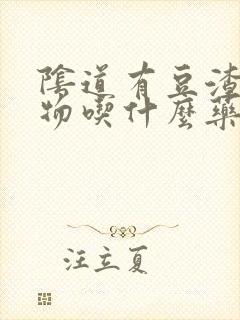 陰道有豆渣
物喫什麼藥
汪立夏